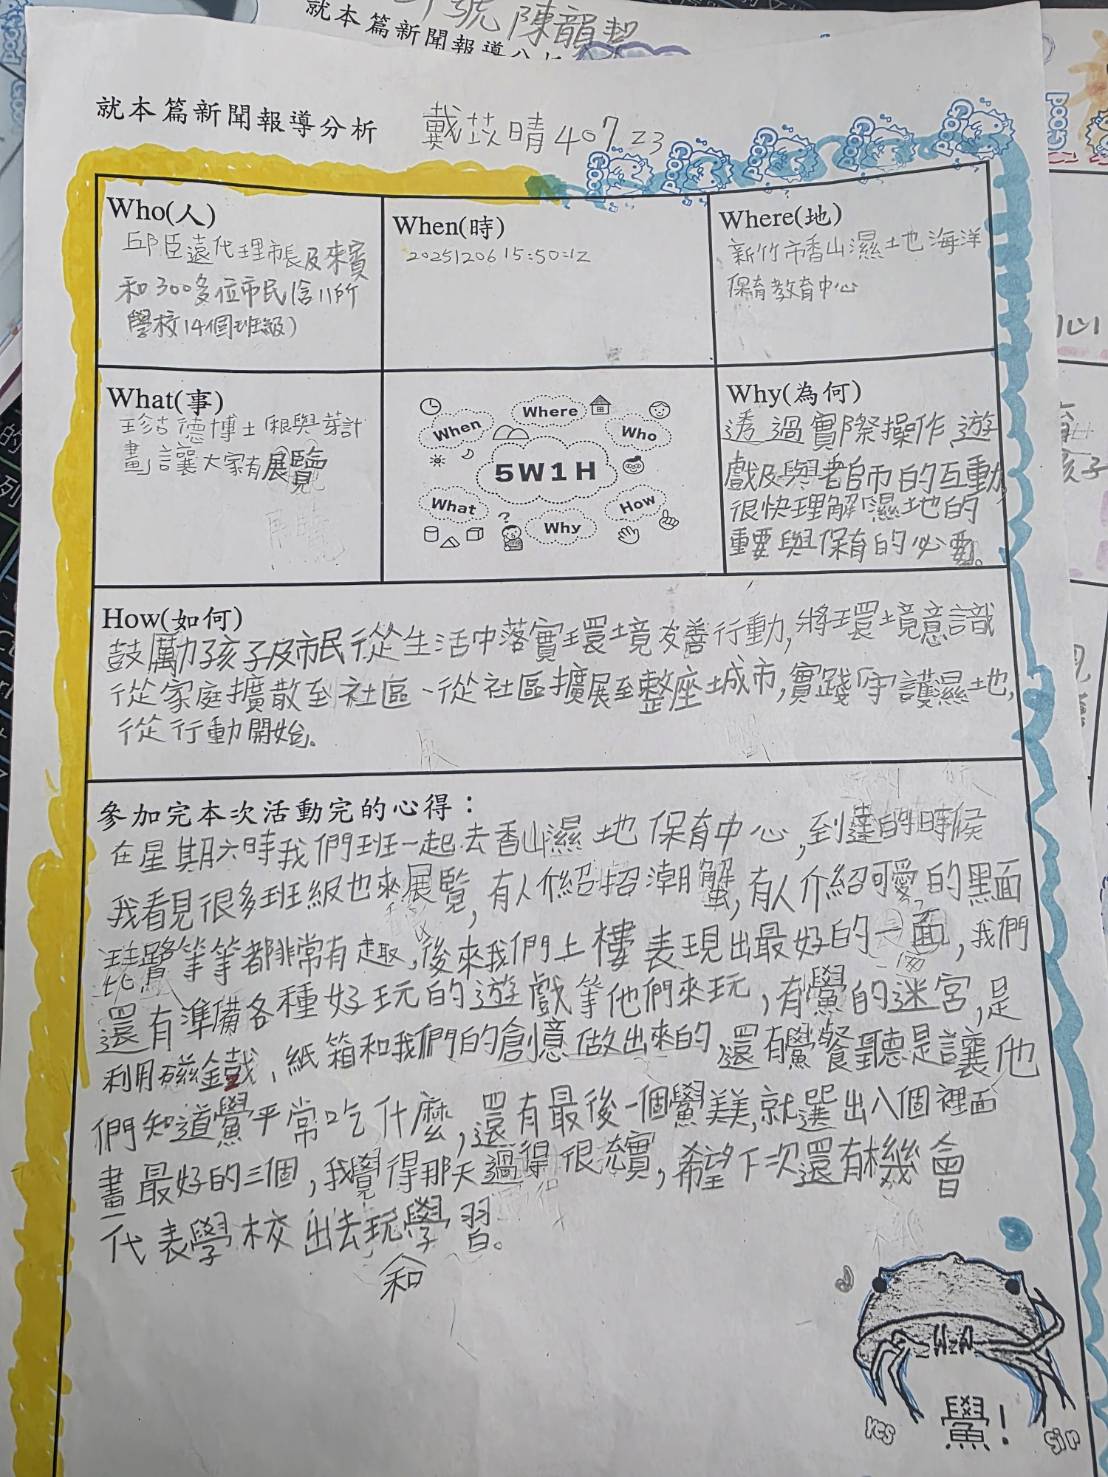 就本篇新聞報導分析
就本篇新聞報導分析 戴苡晴 407 23
GOOD GOOD GOOD GOOD GOOD
Who(人)
邱臣遠代理市長及來賓
和300多位市民(含11所
學校14個班級)
When(時)
20251206 15:50:12
Where(地)
新竹市香山濕土地海洋
保育教育中心
What(事)
珍古德博士「根與芽計
畫」讓大家有展覽
When
Where
Who
5W1H
What
Why
How
?
Why(為何)
透過實際操作,遊
戲及與老師的互動,
很快理解濕地的
重要與保育的必要。
How(如何)
鼓勵孩子及市民從生活中落實環境友善行動,將環境意識
從家庭擴散到社區、從社區擴展至整座城市,實踐守護濕地,
從行動開始。
參加完本次活動完的心得:
在星期六時我們班一起去香山濕地保育中心,到達的時候
我看見很多班級也來展覽,有人介紹招潮蟹,有人介紹可愛的黑面
琵鷺等等都非常有趣,後來我們上樓表現出最好的一面,我們
還有準備各種好玩的遊戲等他們來玩,有鱟的迷宮,是
利用磁鐵、紙箱和我們的創意做出來的,還有鱟餐聽是讓他
們知道鱟平常吃什麼,還有最後一個鱟美美,就選出八個裡面
畫最好的三個,我覺得那天過得很充實,希望下次還有機會
代表學校出去玩學習。
和
鱟!
Yes
Sir